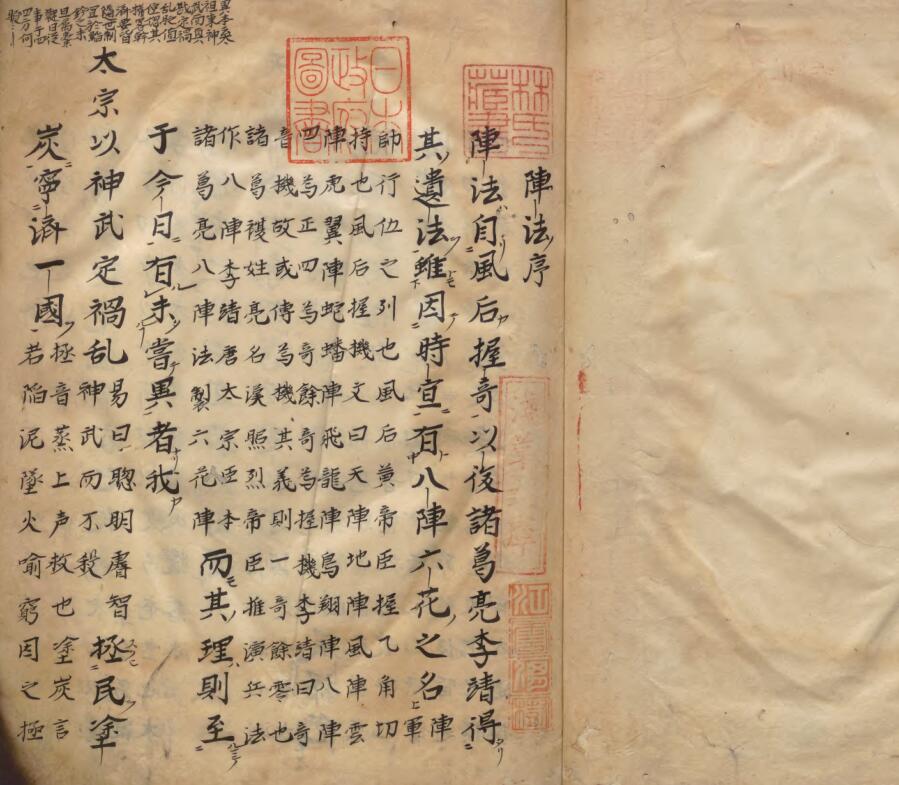 林氏藏書
日本政府圖書
淺草文庫
江雲渭樹
陣法序
陣法自風后握奇以後諸葛亮李靖得
其遺法雖因時宜有八陣六花之名
陣
軍
帥行伍之列也風后黄帝臣握乙角切
持也風后握機文曰天陣地陣風陣雲
陣虎翼陣蛇蟠陣飛龍陣鳥翔陣八陣
四為正四為奇餘奇為握機李靖曰奇
音機故或傳為機其義則一奇餘零也
諸葛複姓亮名漢照烈帝臣推演兵法
作八陣李靖唐太宗臣本
諸葛亮八陣法製六花陣
而其理則至
于今日有未嘗異者我
太宗以神武定禍乱
易曰聡明睿智
神武而不殺
拯民塗
炭寧濟一國
拯音蒸上声救也塗炭言
若陷泥墜火喻窮困之極